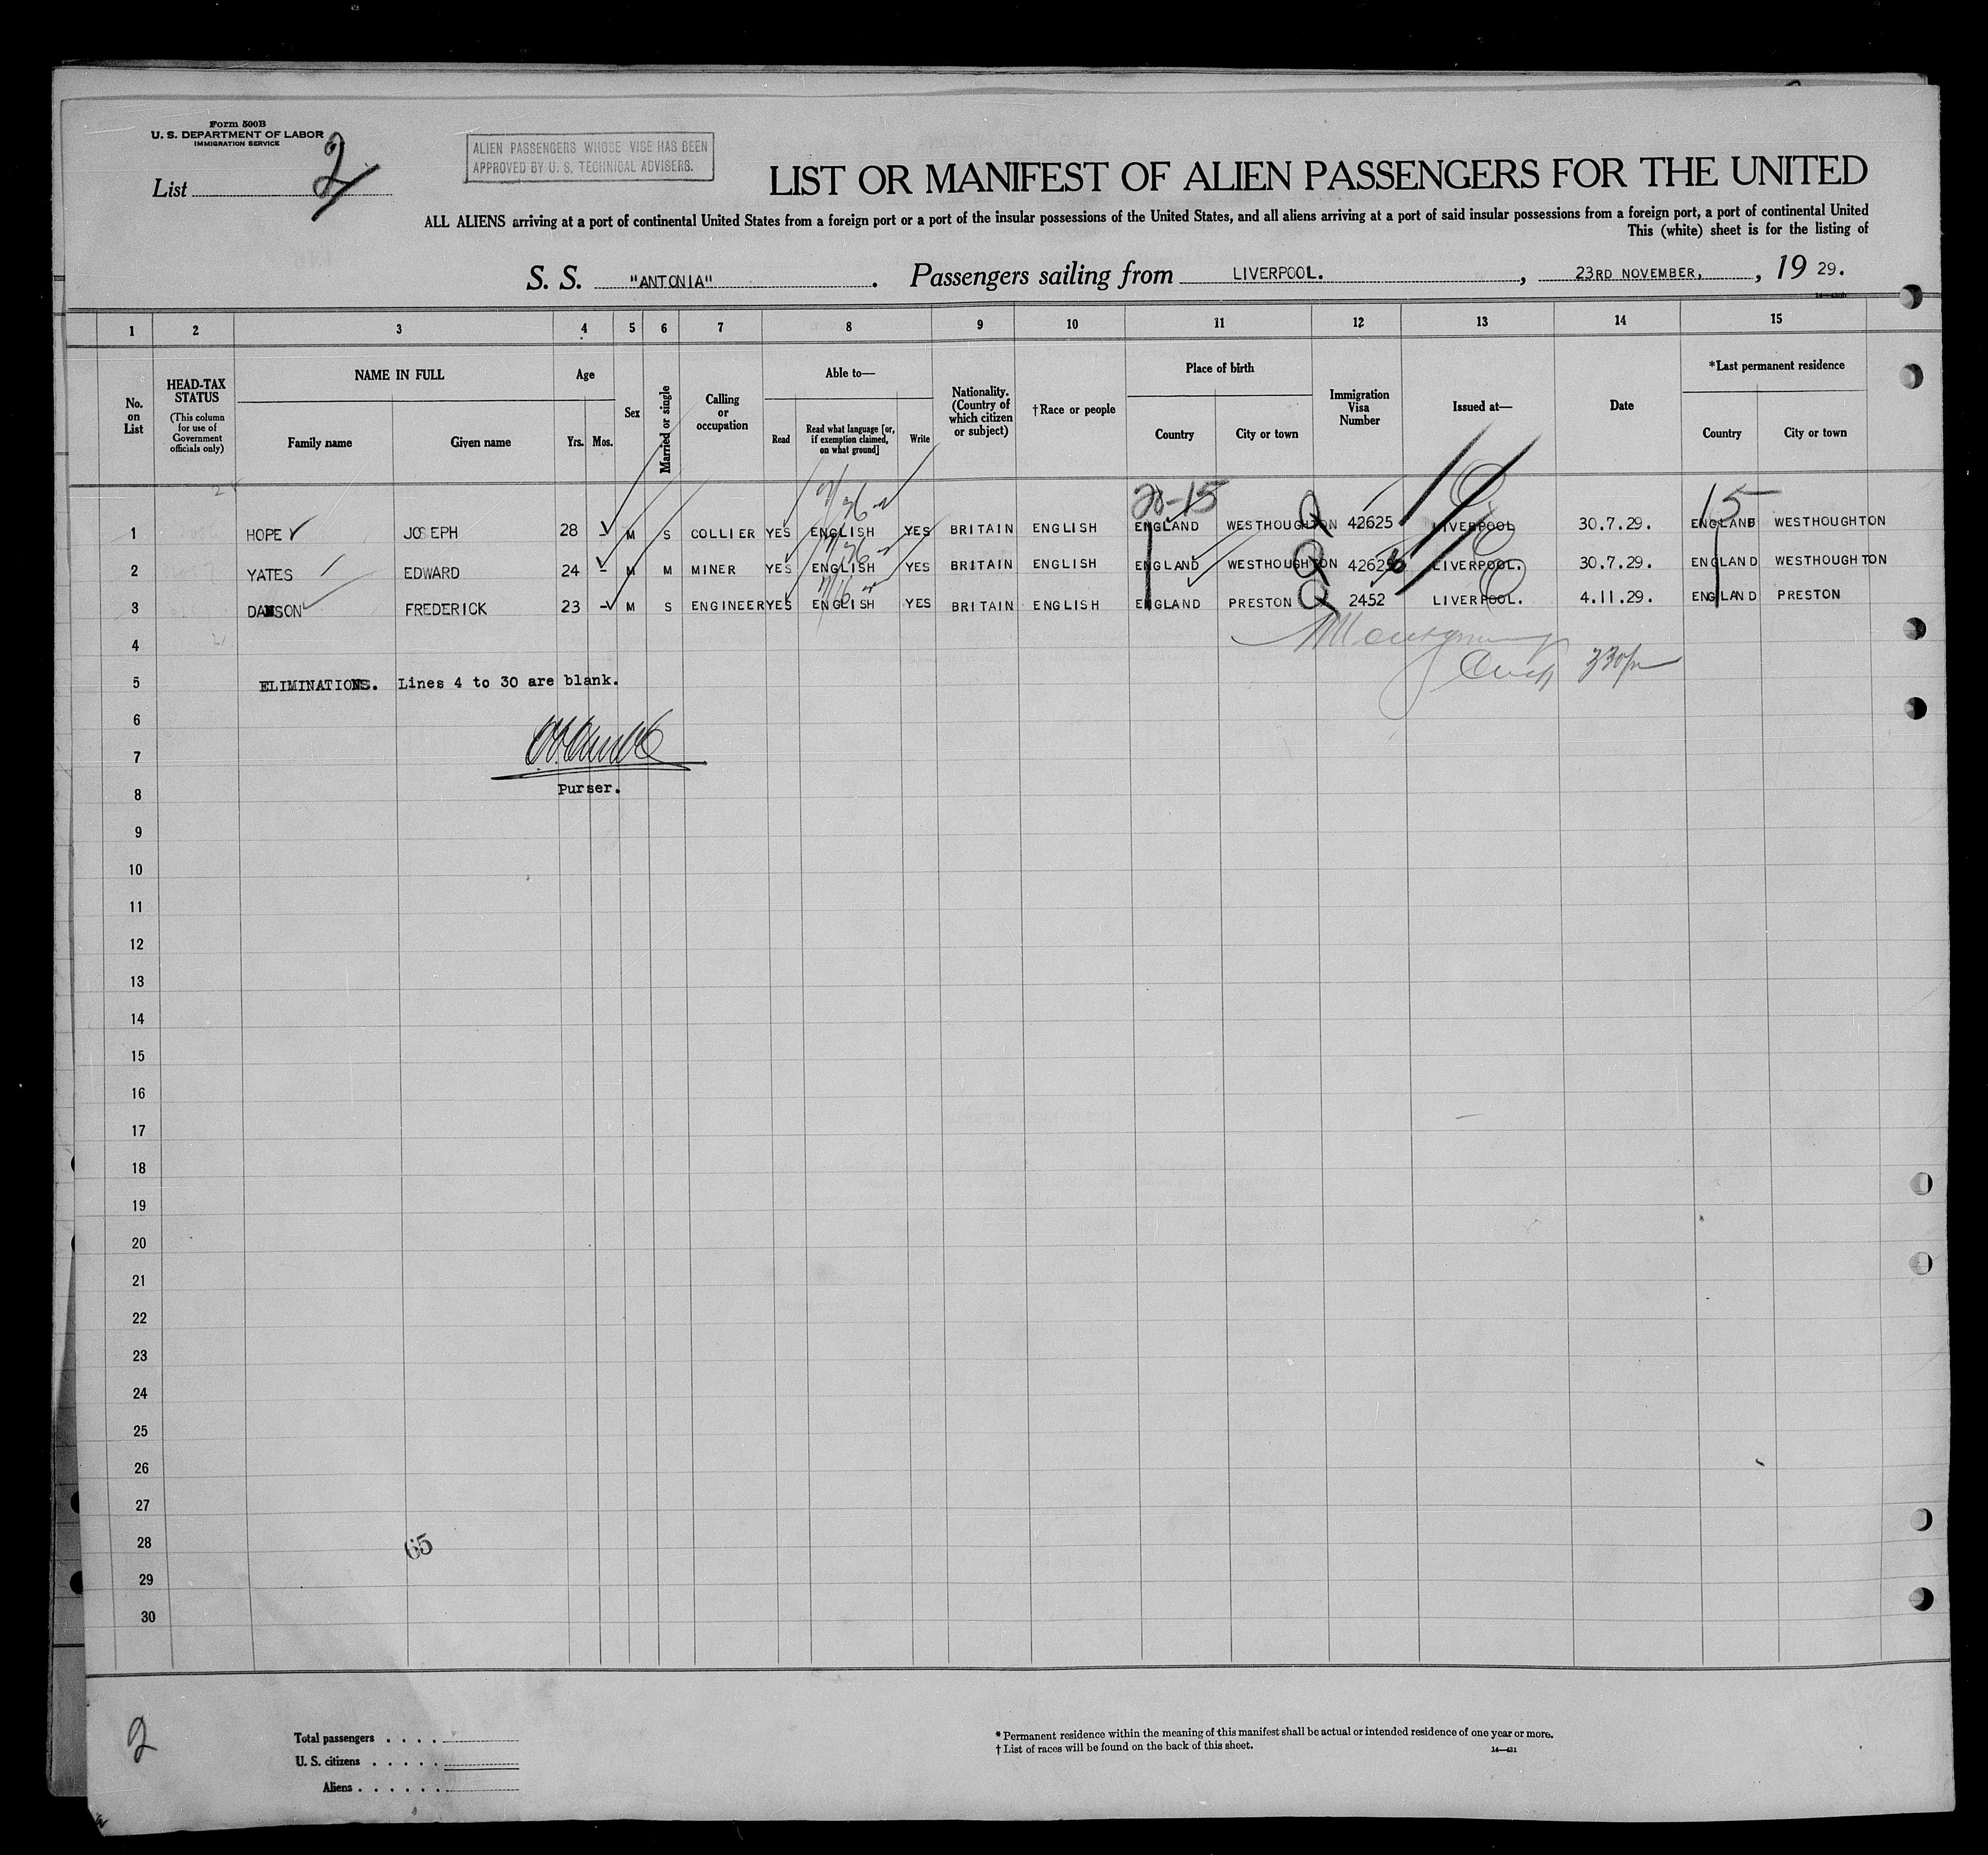 Form 500B
U. S. DEPARTMENT OF LABOR
IMMIGRATION SERVICE
List 2
ALIEN PASSENGERS WHOSE VISE HAS BEEN
APPROVED BY U. S. TECHNICAL ADVISERS.
LIST OR MANIFEST OF ALIEN PASSENGERS FOR THE UNITED
ALL ALIENS arriving at a port of continental United States from a foreign port or a port of the insular possessions of the United States, and all aliens arriving at a port of said insular possessions from a foreign port, a port of continental United
This (white) sheet is for the listing of
S. S. "ANTONIA" . Passengers sailing from LIVERPOOL. , 23RD NOVEMBER, , 19 29.
1 2 3 4 5 6 7 8 9 10 11 12 13 14 15
No. on List
HEAD-TAX STATUS
(This column for use of Government officials only)
NAME IN FULL
Family name Given name
Age
Yrs. Mos.
Sex
Married or single
Calling or occupation
Able to—
Read
Read what language [or, if exemption claimed, on what ground]
Write
Nationality. (Country of which citizen or subject)
†Race or people
Place of birth
Country City or town
Immigration Visa Number
Issued at—
Date
*Last permanent residence
Country City or town
20-15 15
1 HOPE JOSEPH 28 - M S COLLIER YES ENGLISH YES BRITAIN ENGLISH ENGLAND WESTHOUGHTON 42625 LIVERPOOL 30.7.29. ENGLAND WESTHOUGHTON
2 YATES EDWARD 24 - M M MINER YES ENGLISH YES BRITAIN ENGLISH ENGLAND WESTHOUGHTON 42626 LIVERPOOL. 30.7.29. ENGLAND WESTHOUGHTON
3 DAWSON FREDERICK 23 - M S ENGINEER YES ENGLISH YES BRITAIN ENGLISH ENGLAND PRESTON 2452 LIVERPOOL. 4.11.29. ENGLAND PRESTON
4
5 ELIMINATIONS. Lines 4 to 30 are blank.
6
7
8 Purser.
9
10
11
12
13
14
15
16
17
18
19
20
21
22
23
24
25
26
27
28 65
29
30
2
Total passengers . . . .
U. S. citizens . . . . .
Aliens . . . . . .
* Permanent residence within the meaning of this manifest shall be actual or intended residence of one year or more.
† List of races will be found on the back of this sheet.
14—431